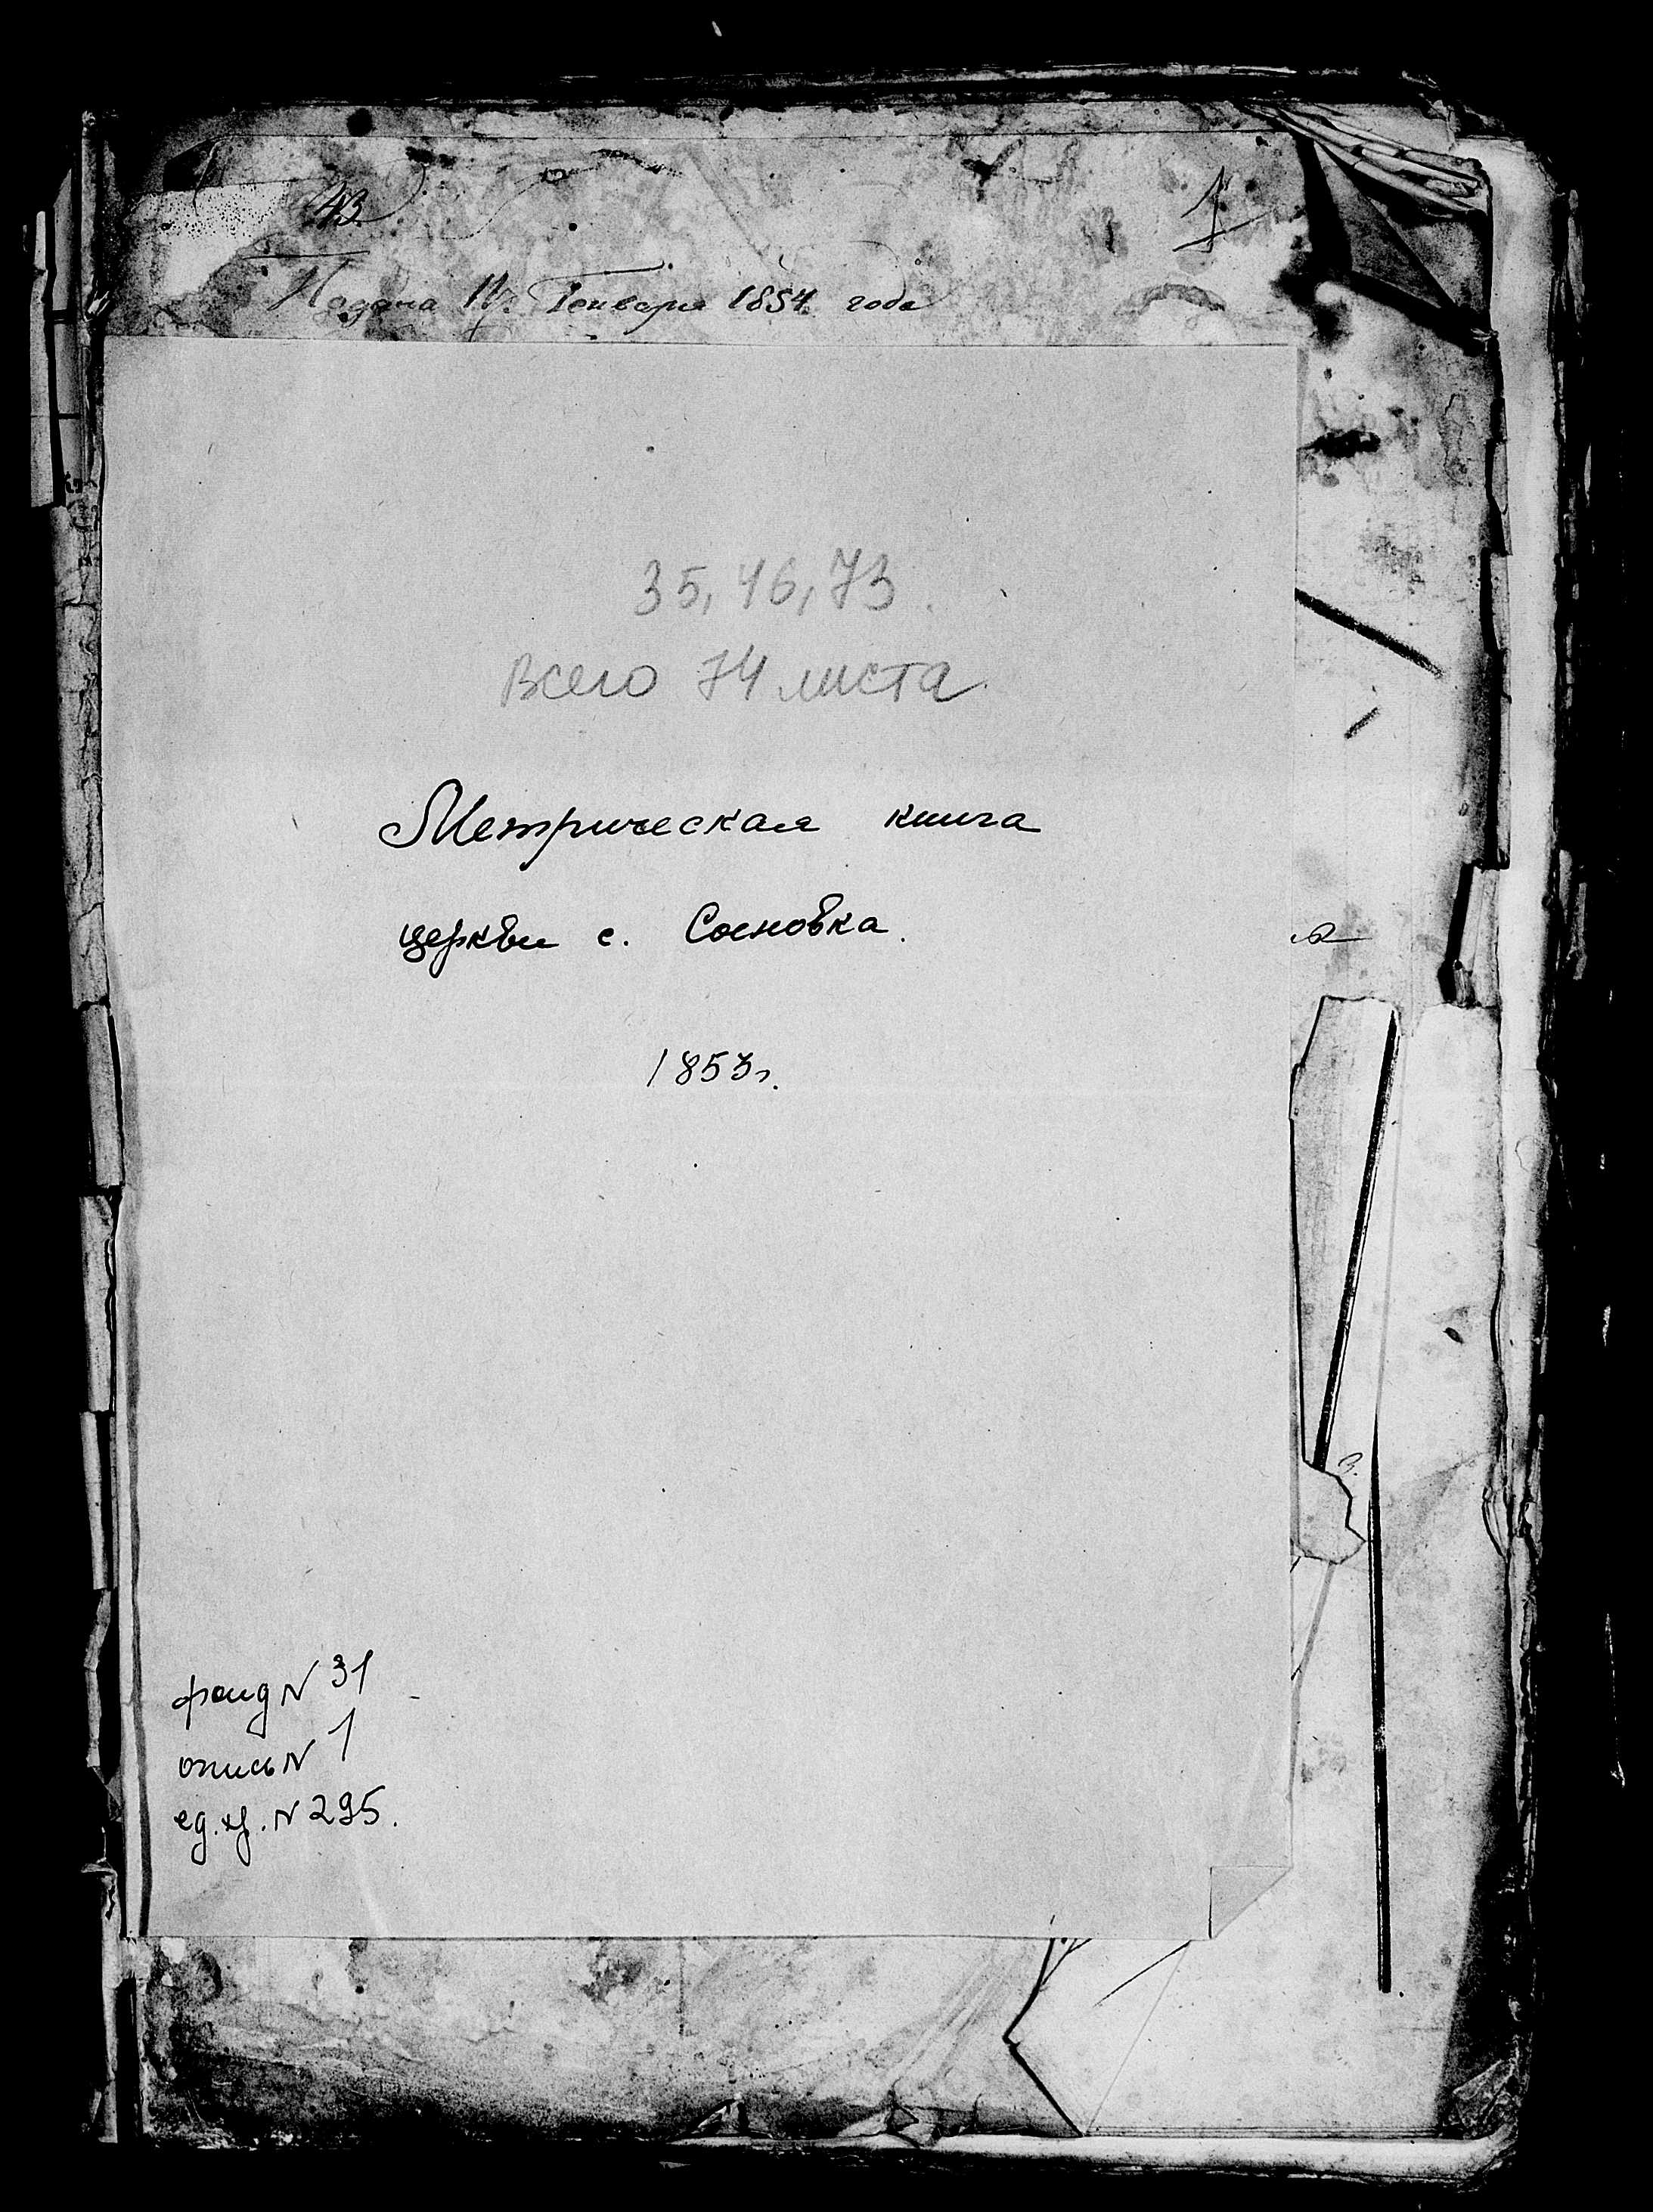 43
1
Подана 17. Генваря 1854. года
35, 46, 73.
Всего 74 листа.
Метрическая книга
церкви с. Сосновка.
1853г.
фонд N 31
опись N 1
ед. хр. N 295.